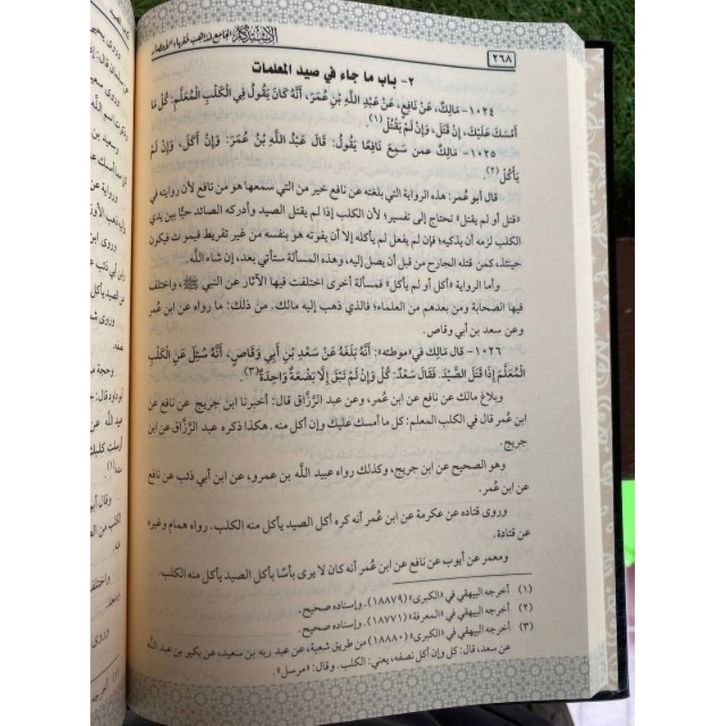 الاستذكار الجامع لمذاهب فقهاء الأمصار
٢٦٨
٢- باب ما جاء في صيد المعلمات
١٠٢٤- مَالِكٌ، عَنْ نَافِعٍ، عَنْ عَبْدِ اللَّهِ بْنِ عُمَرَ، أَنَّهُ كَانَ يَقُولُ فِي الْكَلْبِ الْمُعَلَّمِ: كُلْ مَا
أَمْسَكَ عَلَيْكَ، إِنْ قَتَلَ، وَإِنْ لَمْ يَقْتُلْ(١)
١٠٢٥- مَالِكٌ عمن سَمِعَ نَافِعًا يَقُولُ: قَالَ عَبْدُ اللَّهِ بْنُ عُمَرَ: وَإِنْ أَكَلَ، وَإِنْ لَمْ
يَأْكُلْ(٢).
قال أبو عمر: هذه الرواية التي بلغته عن نافع خير من التي سمعها هو من نافع لأن روايته في
«قتل أو لم يقتل» تحتاج إلى تفسير؛ لأن الكلب إذا لم يقتل الصيد وأدركه الصائد حيًّا بين يدي
الكلب لزمه أن يذكيه؛ فإن لم يفعل لم يأكله إلا أن يفوته هو بنفسه من غير تفريط فيموت فيكون
حينئذ، كمن قتله الجارح من قبل أن يصل إليه، وهذه المسألة ستأتي بعد، إن شاء اللَّه.
وأما الرواية «أكل أو لم يأكل» فمسألة أخرى اختلفت فيها الآثار عن النبي ﷺ، واختلف
فيها الصحابة ومن بعدهم من العلماء؛ فالذي ذهب إليه مالك. من ذلك: ما رواه عن ابن عُمر
وعن سعد بن أبي وقاص.
١٠٢٦- قال مَالِك في «موطئه»: أَنَّهُ بَلَغَهُ عَنْ سَعْدِ بْنِ أَبِي وَقَّاصٍ، أَنَّهُ سُئِلَ عَنِ الْكَلْبِ
الْمُعَلَّمِ إِذَا قَتَلَ الصَّيْدَ. فَقَالَ سَعْدٌ: كُلْ وَإِنْ لَمْ تَبْقَ إِلَّا بَضْعَةٌ وَاحِدَةٌ(٣).
وبلاغ مالك عن نافع عن ابن عُمر، وعن عبد الرَّزَّاق قال: أخبرنا ابن جريج عن نافع عن
ابن عُمر قال في الكلب المعلم: كل ما أمسك عليك وإن أكل منه. هكذا ذكره عبد الرَّزَّاق عن ابن
جريج.
وهو الصحيح عن ابن جريج، وكذلك رواه عبيد اللَّه بن عمرو، عن ابن أبي ذئب عن نافع
عن ابن عُمر.
وروى قتاده عن عكرمة عن ابن عُمر أنه كره أكل الصيد يأكل منه الكلب. رواه همام وغيره
عن قتادة.
ومعمر عن أيوب عن نافع عن ابن عُمر أنه كان لا يرى بأسًا بأكل الصيد يأكل منه الكلب.
(١) أخرجه البيهقي في «الكبرى» (١٨٨٧٩). وإسناده صحيح.
(٢) أخرجه البيهقي في «المعرفة» (١٨٧٧١). وإسناده صحيح.
(٣) أخرجه البيهقي في «الكبرى» (١٨٨٨٠) من طريق شعبة، عن عبد ربه بن سعيد، عن بكير بن عبد اللَّه
عن سعد، قال: كل وإن أكل نصفه، يعني: الكلب. وقال: «مرسل».